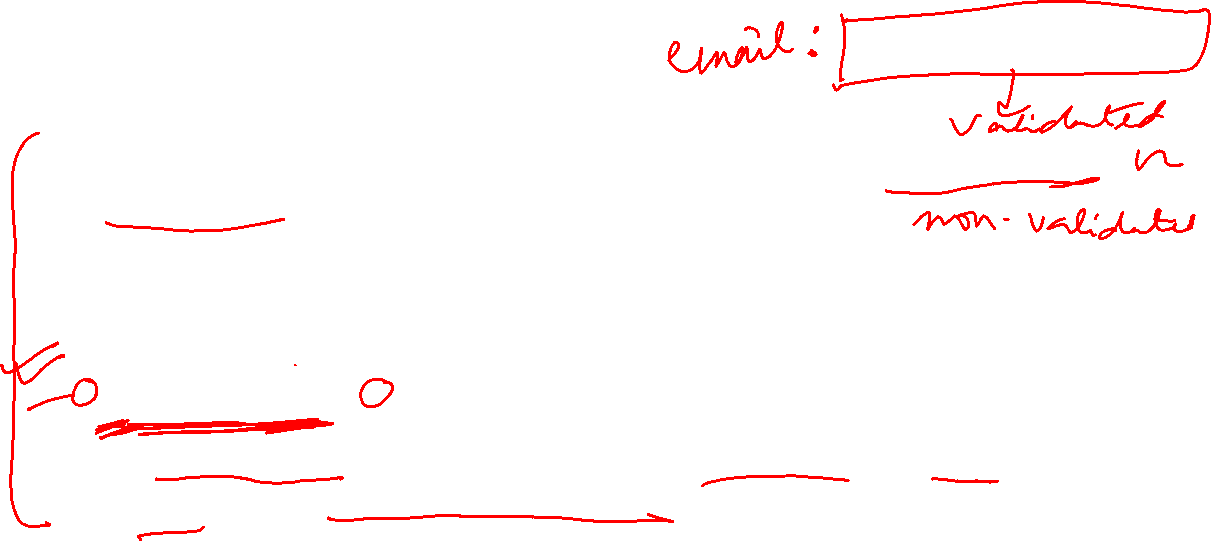 email:
validated
non-validated